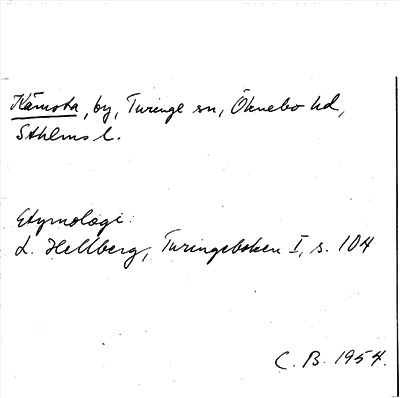 Kämsta, by, Turinge sn, Öknebo hd,
Sthlms l.
Etymologi:
L. Hellberg, Turingeboken I, s. 104
C. B. 1954.